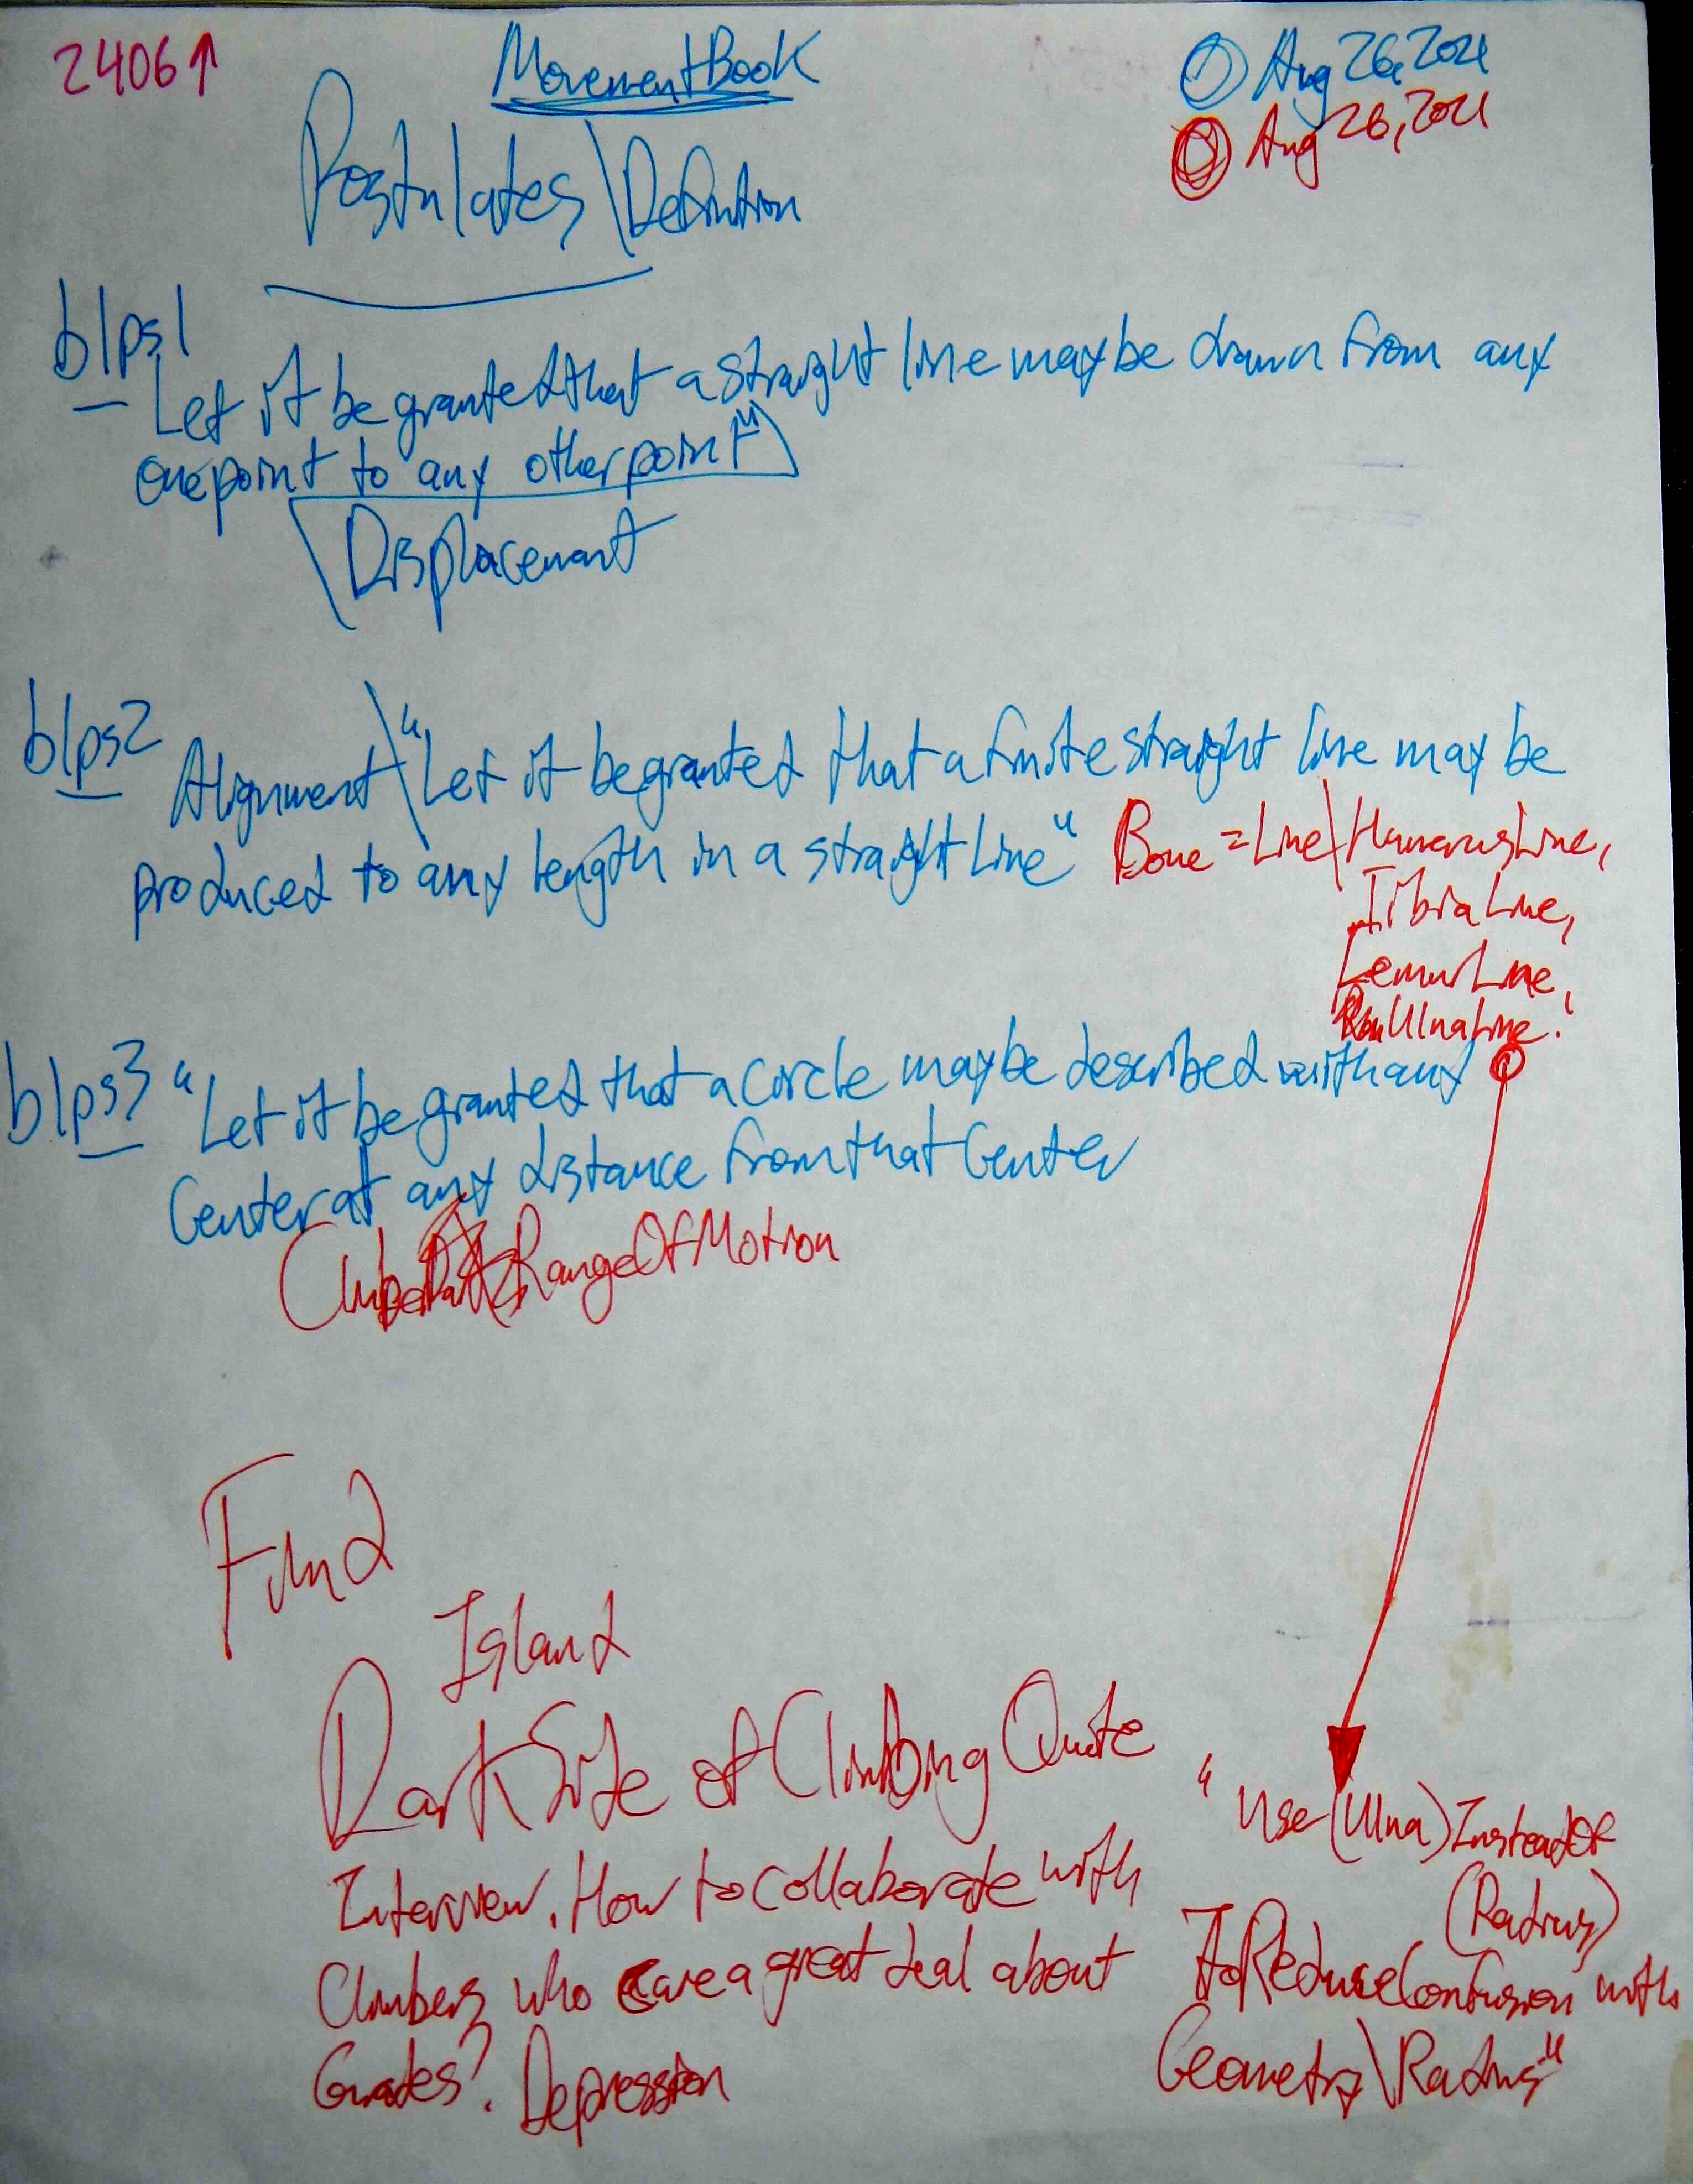 2406↑
MovementBook
① Aug 26, 2021
② Aug 26, 2021
Postulates\Definition
b1ps1
Let it be granted that a straight line may be drawn from any
one point to any other point"
\Displacement
b1ps2
Alignment\"Let it be granted that a finite straight line may be
produced to any length in a straight Line"
Bone=Line\HumerusLine,
TibiaLine,
FemurLine,
UlnaLine.
b1ps3 "Let it be granted that a Circle may be described with any
Center at any distance from that Center
RangeOfMotion
Find
Island
Dark Side of Climbing Quote
Interview. How to collaborate with
Climbers who care a great deal about
Grades? Depression
"Use (Ulna) InsteadOf
(Radius)
ToReduceConfusion with
Geometry\Radius"